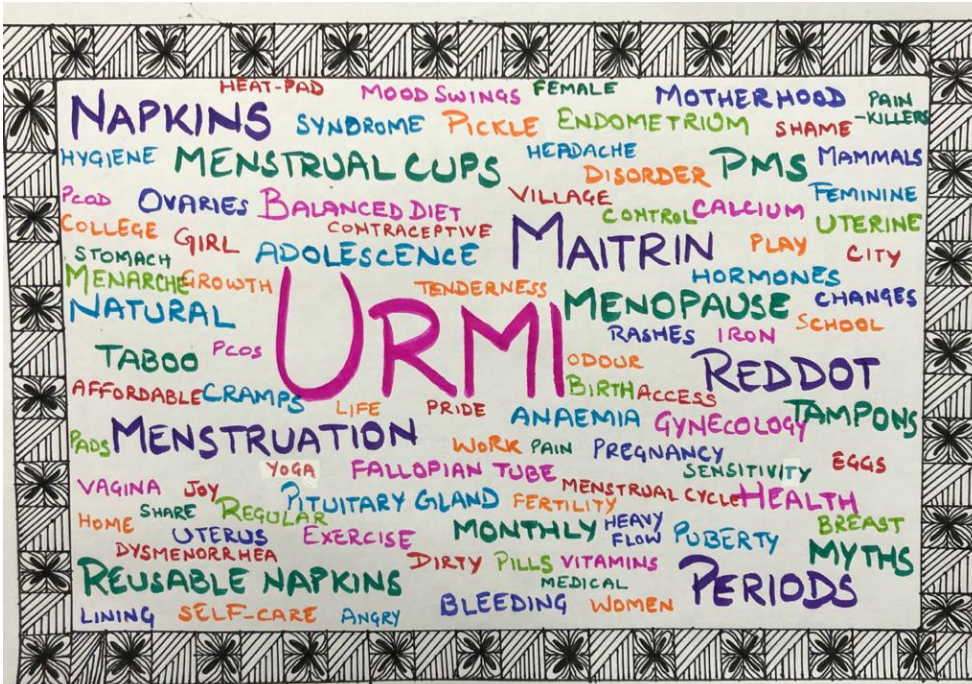 HEAT-PAD MOOD SWINGS FEMALE MOTHERHOOD PAIN
NAPKINS SYNDROME PICKLE ENDOMETRIUM SHAME -KILLERS
HYGIENE MENSTRUAL CUPS HEADACHE DISORDER PMS MAMMALS
PCOD OVARIES BALANCED DIET VILLAGE CONTROL CALCIUM FEMININE
COLLEGE GIRL CONTRACEPTIVE MAITRIN PLAY UTERINE
STOMACH ADOLESCENCE CITY
MENARCHE GROWTH TENDERNESS MENOPAUSE HORMONES CHANGES
NATURAL URMI RASHES IRON SCHOOL
TABOO PCOS ODOUR REDDOT
AFFORDABLE CRAMPS LIFE PRIDE BIRTH ACCESS
PADS MENSTRUATION ANAEMIA GYNECOLOGY TAMPONS
WORK PAIN PREGNANCY
YOGA FALLOPIAN TUBE SENSITIVITY EGGS
VAGINA JOY PITUITARY GLAND FERTILITY MENSTRUAL CYCLE HEALTH
HOME SHARE REGULAR MONTHLY HEAVY BREAST
UTERUS EXERCISE FLOW PUBERTY
DYSMENORRHEA DIRTY PILLS VITAMINS MYTHS
REUSABLE NAPKINS MEDICAL PERIODS
LINING SELF-CARE ANGRY BLEEDING WOMEN